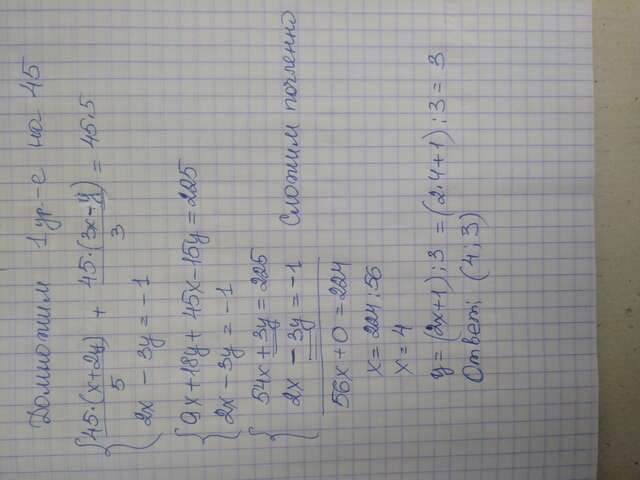 Домножим 1 ур-е на 45
{ 45·(x+2y)/5 + 45·(3x-y)/3 = 45·5
2x - 3y = -1
{ 9x+18y+45x-15y=225
2x-3y=-1
{ 54x+3y=225
2x-3y=-1 Сложим почленно
56x+0=224
x=224:56
x=4
y=(2x+1):3=(2·4+1):3=3
Ответ: (4;3)